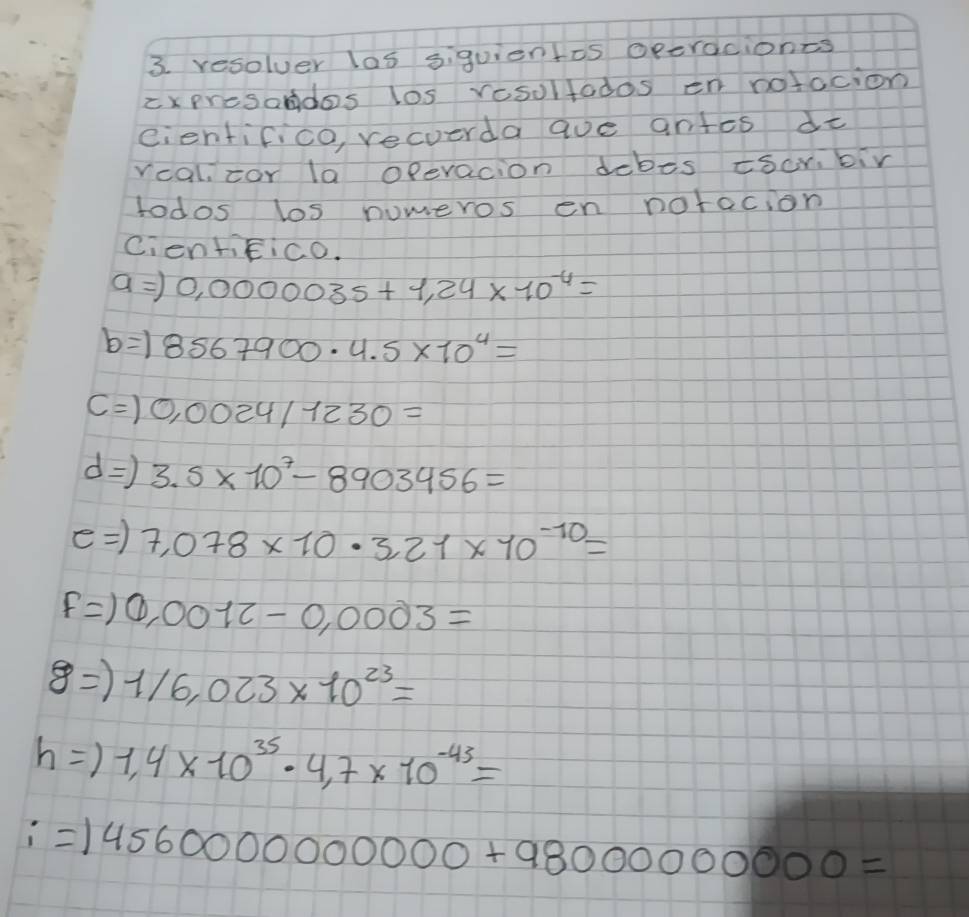 3. resolver las siguientes operaciones
expresandos los resultados en notacion
cientifica, recuerda que antes de
realizar la operacion debes escribir
todos los numeros en notacion
cientifica.
a=) 0,0000035 + 1,24 x 10⁻⁴ =
b=) 8567900 · 4.5 x 10⁴ =
c=) 0,0024 / 1230 =
d=) 3.5 x 10⁷ - 8903456 =
e=) 7,078 x 10 · 3,21 x 10⁻¹⁰ =
f=) 0,0012 - 0,0003 =
g=) 1/6,023 x 10²³ =
h=) 1,4 x 10³⁵ · 4,7 x 10⁻⁴³ =
i=) 456000000000 + 98000000000 =